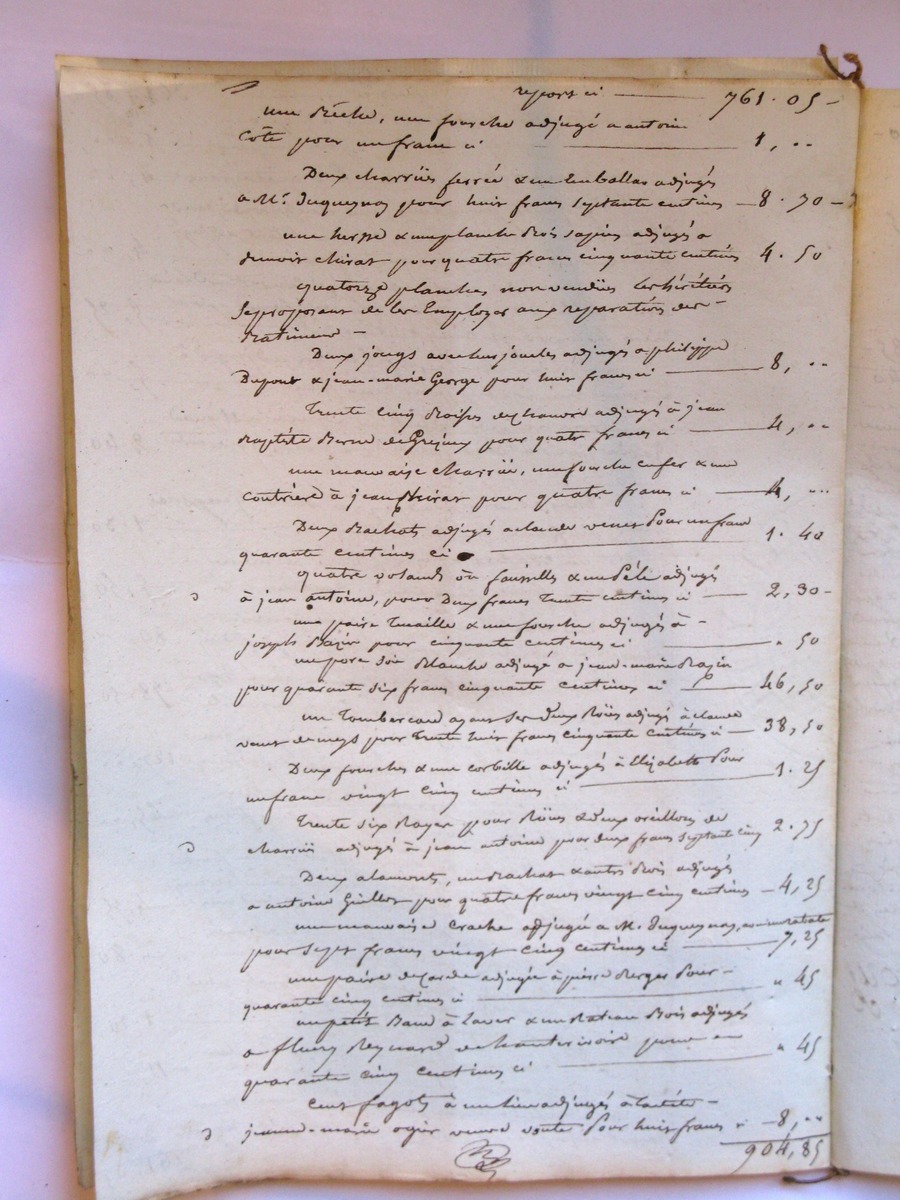 report ci 761.05
une Bêche, une fourche adjugé a antoine
Côte pour un franc ci 1, ..
Deux charriis ferrée & un Emballas adjugés
a Mr. Duquesnay pour huit francs septante centimes 8.70
une herse & une planche Bois sapins adjugés a
benoit chirat pour quatre francs cinquante centimes 4.50
quatorze planches non vendues les héritiers
se proposant de les Employer aux reparations des
Batiments
Deux jougs avec leur joucles adjugés a philippe
Dupont & jean-marie George pour huit francs ci 8, ..
Trente cinq Bottes de chanvre adjugés à jean
Baptiste Berne de Grézieux pour quatr francs ci 4, ..
une mauvaise charrii, une fourche en fer & une
coutriere à jean chirat pour quatre francs ci 4, ..
Deux Bachats adjugés a claude venet Pour un franc
quarante centimes ci 1.40
quatre volands ou faucilles & une Pèle adjugés
à jean antoine, pour Deux francs Trente centimes ci 2,30
une paire Tenaille & une fourche adjugés à
joseph Bazin pour cinquante centimes ci " 50
un porc soie Blanche adjugé a jean-marie Bazin
pour quarante six francs cinquante centimes ci 46,50
un Tombereau ayant ses deux Roües adjugé à claude
venet de meys pour Trente huit francs cinquante centimes ci 38,50
Deux fourches & une corbeille adjugés à Elizabeth Pour
un franc vingt cinq centimes ci 1.25
Trente six Rayes pour Roües & deux oreillons de
charrii adjugés à jean antoine pour deux francs septante cinq 2.75
Deux alamonts, un Bachat & autres Bois adjugés
a antoine Guillot pour quatre francs vingt cinq centimes 4,25
une mauvaise Crache adjugée a M. Duquesnay,
pour sept francs vingt cinq centimes ci 7,25
une paire de cardes adjugée à pierre Berger Pour
quarante cinq centimes ci " 45
un petit Banc à Laver & un Rateau Bois adjugés
a fleury Reynard de pour
quarante cinq centimes ci " 45
Cent fagots à un lien adjugés à
jeanne-marie ogier veuve Pour huit francs ci 8, ..
904,85